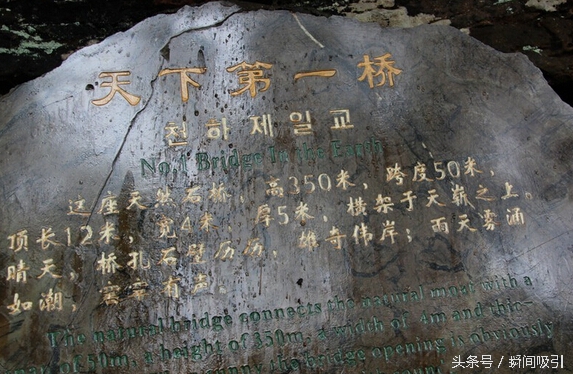 天下第一桥
천하제일교
No.1 Bridge In the Earth
这座天然石桥，高350米，跨度50米，
顶长12米，宽4米，厚5米，横架于天巅之上。
晴天，桥孔石壁历历，雄奇伟岸；雨天雾涌
如潮，有声。
The natural bridge connects the natural mpat with a
span of 50m, a height of 350m, a width of 4m and thic-
the bridge opening is obviously
头条号 / 瞬间吸引